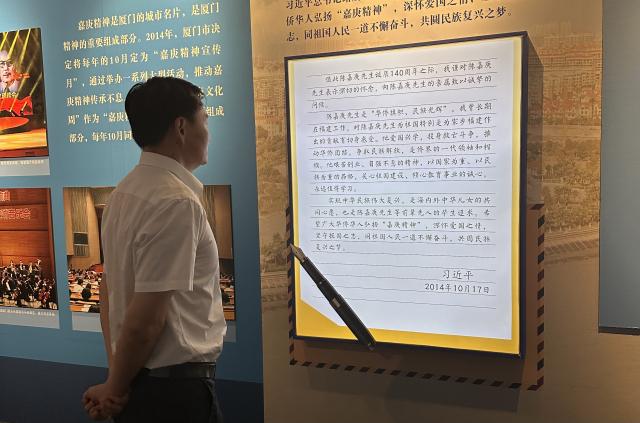 嘉庚精神是厦门的城市名片，是厦
门精神的重要组成部分。2014年，厦门市决
定将每年的10月定为“嘉庚精神宣传
月”，通过举办一系列大型活动，推动嘉
庚精神传承不息
文化
周”作为
部分，每年10月同
侨华人弘扬“嘉庚精神”，深怀爱国之情
志，同祖国人民一道不懈奋斗，共圆民族复兴之梦。
值此陈嘉庚先生诞辰140周年之际，我谨对陈嘉庚
先生表示深切的怀念，向陈嘉庚先生的亲属致以诚挚的
问候。
陈嘉庚先生是“华侨旗帜、民族光辉”。我曾长期
在福建工作，对陈嘉庚先生为祖国特别是为家乡福建作
出的贡献有切身感受。他爱国兴学，投身救亡斗争，推
动华侨团结，争取民族解放，是侨界的一代领袖和楷
模。他艰苦创业、自强不息的精神，以国家为重、以民
族为重的品格，关心祖国建设、倾心教育事业的诚心，
永远值得学习。
实现中华民族伟大复兴，是海内外中华儿女的共
同心愿，也是陈嘉庚先生等前辈先人的毕生追求。希
望广大华侨华人弘扬“嘉庚精神”，深怀爱国之情，
坚守报国之志，同祖国人民一道不懈奋斗，共圆民族
复兴之梦。
习近平
2014年10月17日